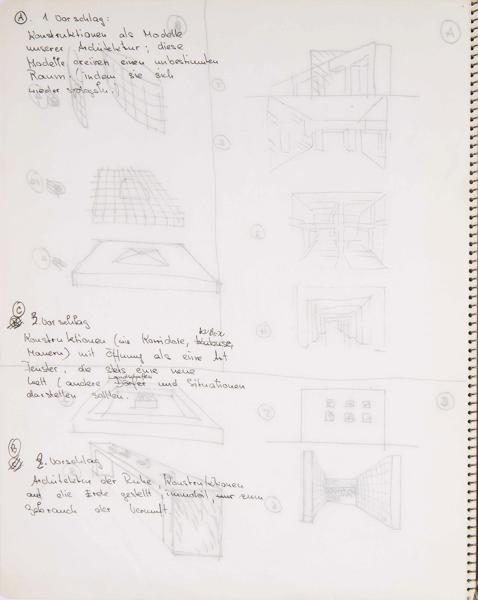 A. 1 Vorschlag:
Konstruktionen als Modelle
unserer Architektur; diese
Modelle kreiren einen unbestimmten
Raum. (indem sie sich
wieder spiegeln.)
A
C
2. Vorschlag
kubix
Konstruktionen (wie Korridore,
Mauern) mit Öffnung als eine Art
Fenster, die stets eine neue
Landschaften
Welt (andere Dörfer und Situationen
darstellen sollten.
B
2. Vorschlag
Architektur der Ruhe, Konstruktionen
auf die Erde gestellt, immobil, nur zum
Gebrauch der Vernunft.